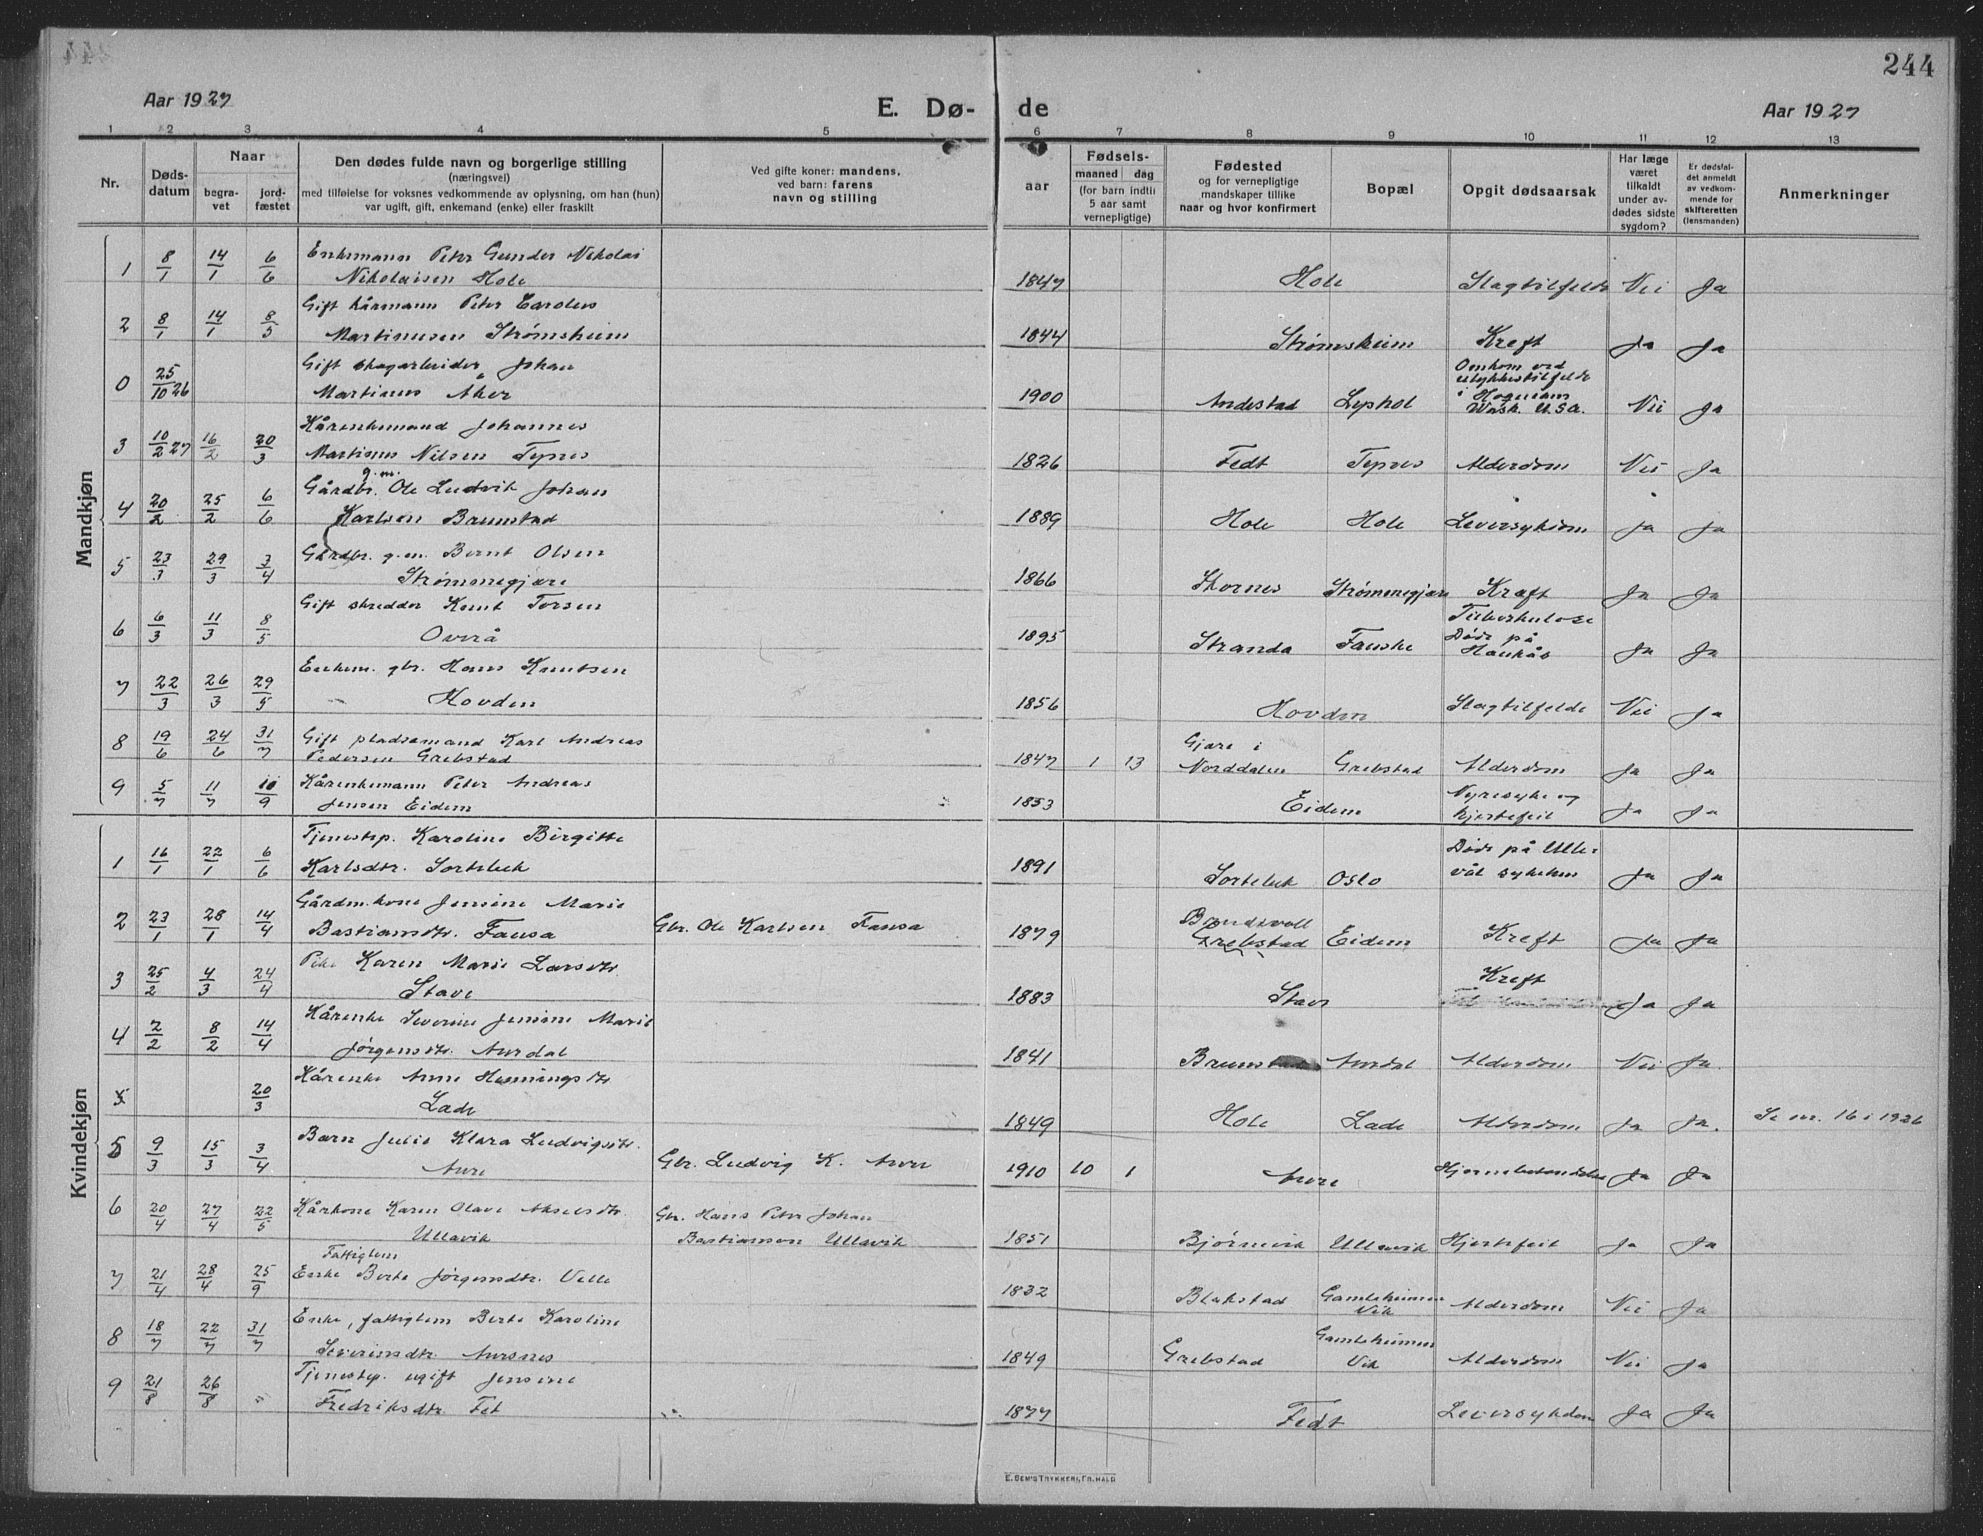 244
Aar 1927 E. Dø- de Aar 1927
1 2 3 4 5 6 7 8 9 10 11 12 13
Nr.
Døds-
datum
Naar
begra-
vet
jord-
fæstet
Den dødes fulde navn og borgerlige stilling
(næringsvei)
med tilføielse for voksnes vedkommende av oplysning, om han (hun)
var ugift, gift, enkemand (enke) eller fraskilt
Ved gifte koner: mandens,
ved barn: farens
navn og stilling
aar
Fødsels-
maaned dag
(for barn indtil
5 aar samt
vernepligtige)
Fødested
og for vernepligtige
mandskaper tillike
naar og hvor konfirmert
Bopæl
Opgit dødsaarsak
Har læge
været
tilkaldt
under av-
dødes sidste
sygdom?
Er dødsfal-
det anmeldt
av vedkom-
mende for
skifteretten
(lensmanden)
Anmerkninger
Mandkjøn
1 8/1 14/1 6/6 Enkemann Peter Gunder Nikolai
Nikolaisen Hole 1847 Hole Slagtilfelde Nei Ja
2 8/1 14/1 8/5 Gift kårmann Peter Carolus
Martinusen Strømsheim 1844 Strømsheim Kreft Ja Ja
0 25/10 26 Gift skogarbeider Johan
Martinus Aker 1900 Andestad Lyshol Omkom ved
ulykkestilfelde
i
Wash. U.S.A. Nei Ja
3 10/2 27 16/2 20/3 Kårenkemand Johannes
Martinus Nilsen Tynes 1826 Fedt Tynes Alderdom Nei Ja
4 20/2 25/2 6/6 Gårdbr. g.m. Ole Ludvik Johan
Karlson Brunstad 1889 Hole Hole Leversykdom Ja Ja
5 23/3 29/3 3/4 Gårdbr. g.m. Bernt Olsen
Strømmegjære 1866 Stornes Strømmegjære Kreft Ja Ja
6 6/3 11/3 8/5 Gift skredder Knut Torsen
Overå 1895 Stranda Fauske Tuberkulose
Døde på
Haukås Ja Ja
7 22/3 26/3 29/5 Enkem. gbr. Hans Knutsen
Hovden 1856 Hovden Slagtilfelde Nei Ja
8 19/6 24/6 31/7 Gift pladsemand Karl Andreas
Pedersen Grebstad 1847 1 13 Gjære i
Norddalen Grebstad Alderdom Ja Ja
9 5/7 11/7 10/9 Kårenkemann Peter Andreas
Jensen Eidem 1853 Eidem Nyresyke og
hjertefeil Ja Ja
Kvindekjøn
1 16/1 22/1 6/6 Tjenestep. Karoline Birgitte
Karlsdtr. Sorteluk 1891 Sorteluk Oslo Døde på Ulle-
vål sykehus Ja Ja
2 23/1 28/1 14/4 Gårdm. kone Jensine Marie
Bastiansdtr. Fausa Gbr. Ole Karlsen Fausa 1879 Brundsvoll
Grebstad Eidem Kreft Ja Ja
3 25/2 4/3 24/4 Pike Karen Marie Larsdtr.
Stave 1883 Stave Kreft Ja Ja
4 2/2 8/2 14/4 Kårenke Severine Jensine Marie
Jørgensdtr. Aurdal 1841 Brunstad Aurdal Alderdom Nei Ja.
5 20/3 Kårenke Anne Henningsdtr
Lade 1849 Hole Lade Alderdom Ja Ja. Se nr. 16 i 1926
5 9/3 15/3 3/4 Barn Julie Klara Ludvigsdtr.
Aure Gbr. Ludvig K. Aure 1910 10 1 Aure Hjernebetendelse Ja Ja
6 20/4 27/4 22/5 Kårkone Karen Olave Akselsdtr.
Ullavik Gbr. Hans Peter Johan
Bastianson Ullavik 1851 Bjørnevik Ullavik Hjertefeil Ja Ja
7 21/4 28/4 25/9 Fattiglem
Enke Berte Jørgensdtr. Velle 1832 Blakstad Gamleheimen
Vik Alderdom Nei Ja
8 18/7 22/7 31/7 Enke, fattiglem Berte Karoline
Severinsdtr. Aursnes 1849 Grebstad Gamleheimen
Vik Alderdom Nei Ja
9 21/8 26/8 " Tjenestep. ugift Jensine
Fredriksdtr. Fet 1877 Fedt Leversykdom Ja Ja
E. SEM'S TRYKKERI, FR. HALD